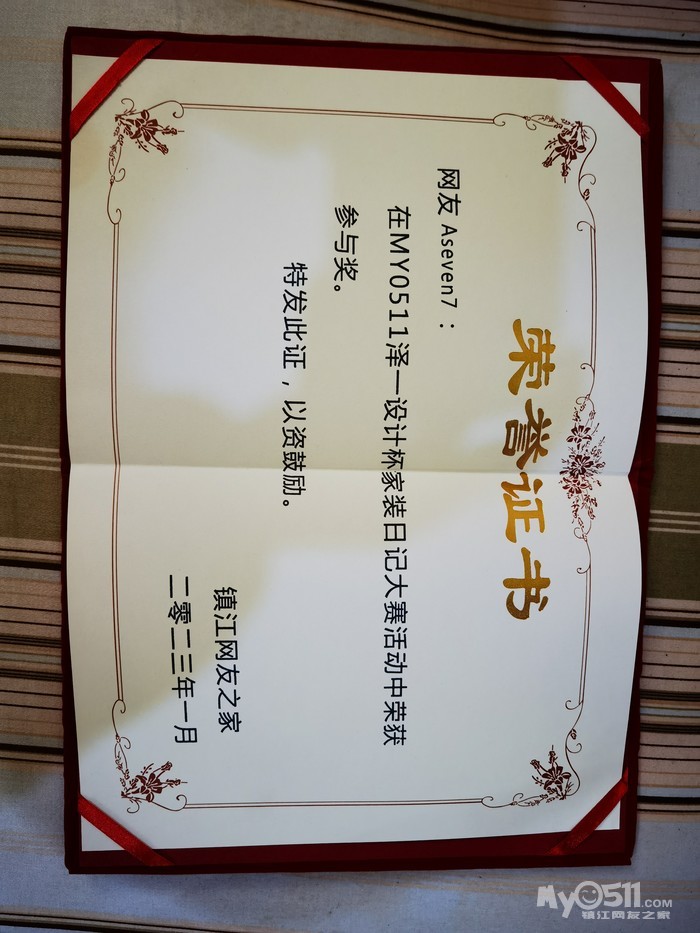 荣誉证书
网友 Aseven7：
在MY0511泽一设计杯家装日记大赛活动中荣获
参与奖。
特发此证，以资鼓励。
镇江网友之家
二零二三年一月
My0511.COM
镇江网友之家